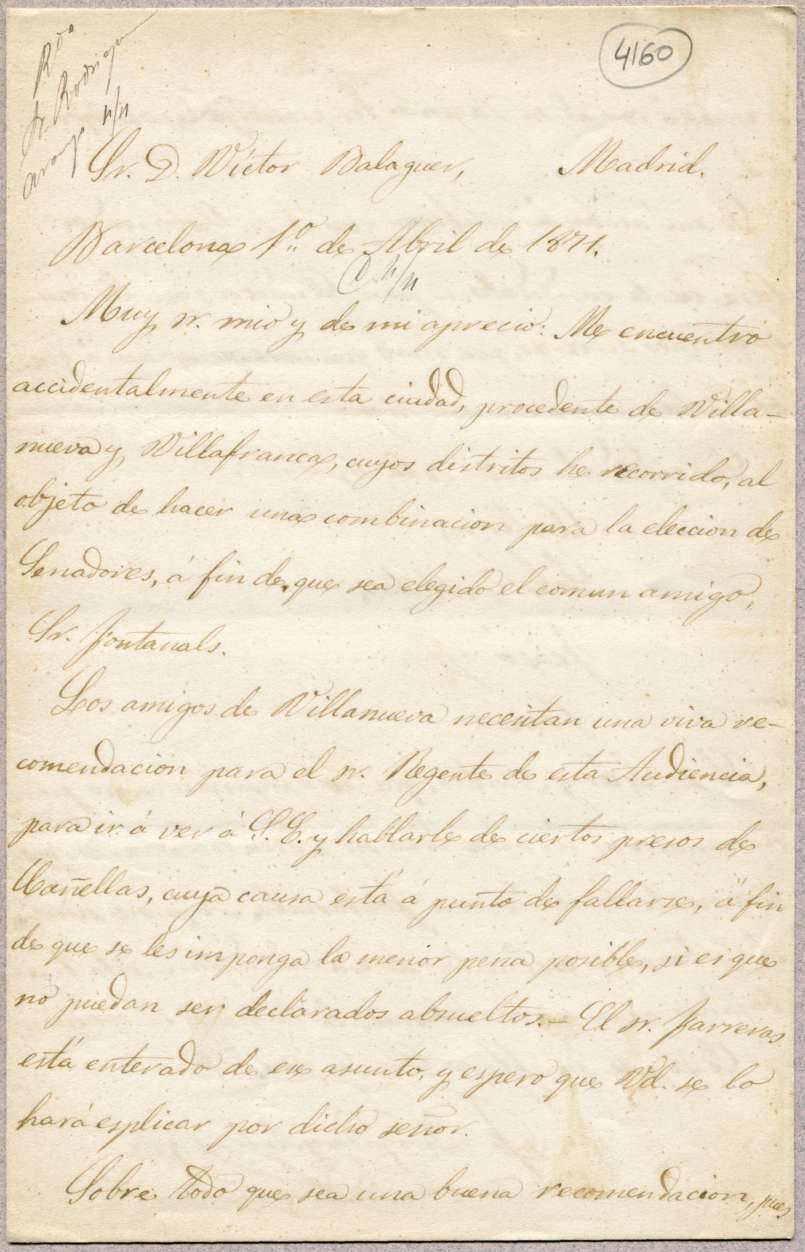 4160
Sr. Rodrigu
arango 4/4
Sr. D. Victor Balaguer, Madrid.
Barcelona 1º de Abril de 1871.
C. 4/4
Muy sr. mio y de mi aprecio: Me encuentro
accidentalmente en esta ciudad, procedente de Villa-
nueva y Villafranca, cuyos distritos he recorrido, al
objeto de hacer una combinacion para la eleccion de
Senadores, á fin de que sea elegido el comun amigo,
Sr. Fontanals.
Los amigos de Villanueva necesitan una viva re-
comendacion para el sr. Regente de esta Audiencia,
para ir á ver á S. E. y hablarle de ciertos presos de
Cañellas, cuya causa está á punto de fallarse, á fin
de que se les imponga la menor pena posible, si es que
no puedan ser declarados absueltos.- El sr. Farreras
está enterado de ese asunto, y espero que Vd. se lo
hará esplicar por dicho señor.
Sobre todo que sea una buena recomendacion, pues